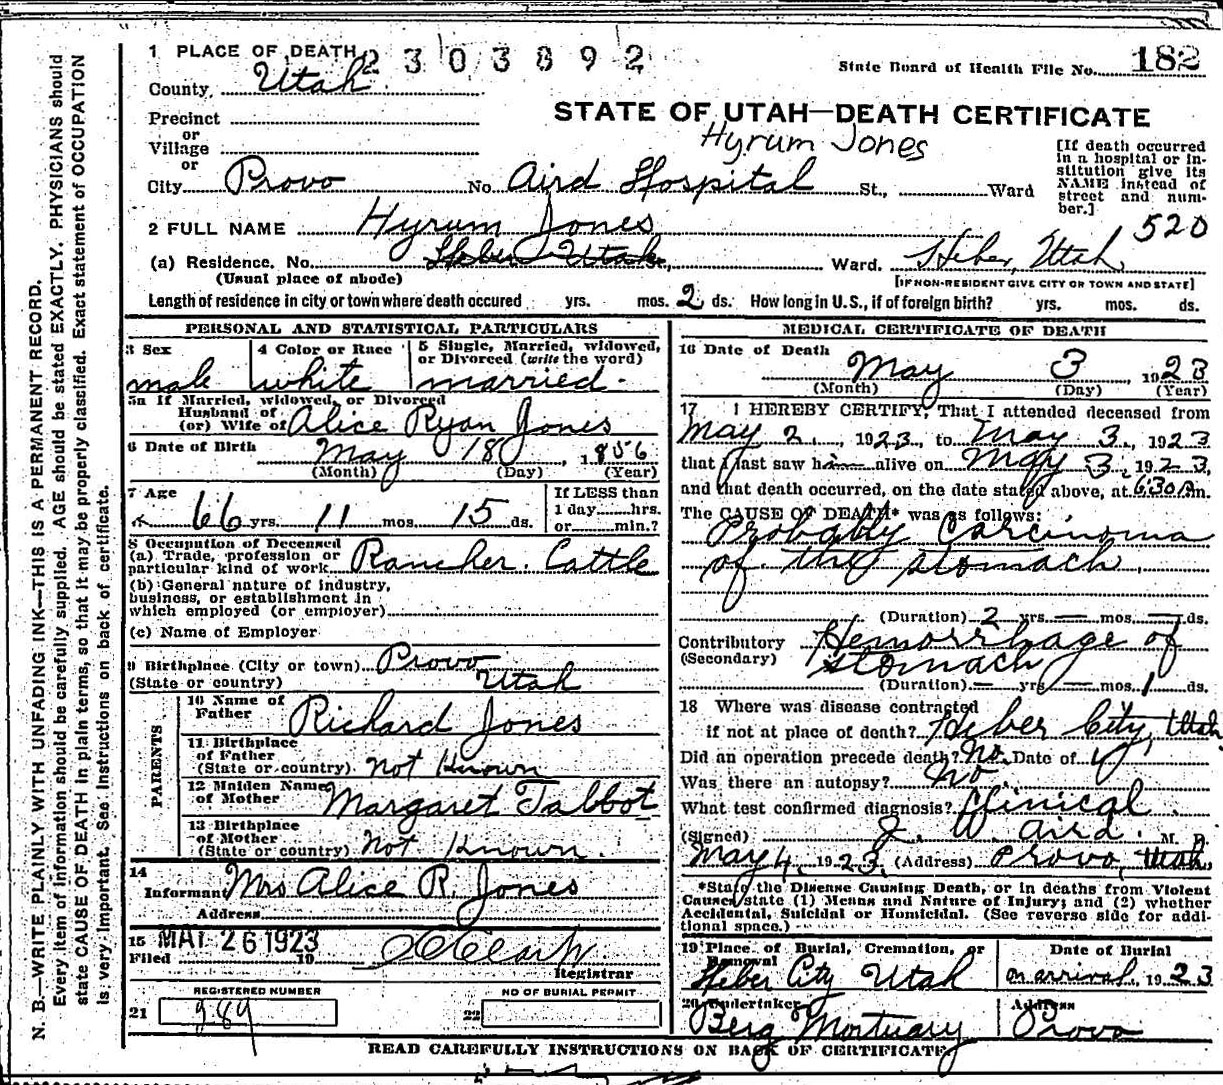 1 PLACE OF DEATH 2303892
State Board of Health File No. 182
County, Utah.
STATE OF UTAH—DEATH CERTIFICATE
Precinct
or
Village
or
Hyrum Jones
City Provo No. Aird Hospital St., Ward
[If death occurred in a hospital or institution give its NAME instead of street and number.]
2 FULL NAME Hyrum Jones 520
(a) Residence, No. Heber Utah, Ward. Heber, Utah
(Usual place of abode) [IF NON-RESIDENT GIVE CITY OR TOWN AND STATE]
Length of residence in city or town where death occured yrs. mos. 2 ds. How long in U.S., if of foreign birth? yrs. mos. ds.
PERSONAL AND STATISTICAL PARTICULARS
3 Sex
male
4 Color or Race
white
5 Single, Married, widowed,
or Divorced (write the word)
married.
5a If Married, widowed, or Divorced
Husband of
(or) Wife of Alice Ryan Jones
6 Date of Birth May 18 1856
(Month) (Day) (Year)
7 Age
66 yrs. 11 mos. 15 ds.
If LESS than
1 day hrs.
or min.?
8 Occupation of Deceased
(a) Trade, profession or
particular kind of work Rancher. Cattle
(b) General nature of industry,
business, or establishment in
which employed (or employer)
(c) Name of Employer
9 Birthplace (City or town) Provo
(State or country) Utah
PARENTS
10 Name of
Father Richard Jones
11 Birthplace
of Father
(State or country) Not Known
12 Maiden Name
of Mother Margaret Talbot
13 Birthplace
of Mother
(State or country) Not Known.
14
Informant Mrs Alice R. Jones
Address
15 MAY 26 1923
Filed 19
Registrar
REGISTERED NUMBER
21 989
NO OF BURIAL PERMIT
22
MEDICAL CERTIFICATE OF DEATH
16 Date of Death
May 3, 1923
(Month) (Day) (Year)
17 I HEREBY CERTIFY, That I attended deceased from
May 2, 1923, to May 3, 1923
that I last saw him alive on May 3, 1923,
and that death occurred, on the date stated above, at 6:30 A.m.
The CAUSE OF DEATH* was as follows:
Probably Carcinoma
of the stomach.
(Duration) 2 yrs. — mos. — ds.
Contributory Hemorrhage of
(Secondary) stomach
(Duration) — yrs. — mos. 1 ds.
18 Where was disease contracted
if not at place of death? Heber City, Utah
Did an operation precede death? No. Date of
Was there an autopsy? No
What test confirmed diagnosis? Clinical.
(Signed) J. W. Aird. M. D.
May 4, 1923. (Address) Provo, Utah,
*State the Disease Causing Death, or in deaths from Violent
Causes, state (1) Means and Nature of Injury; and (2) whether
Accidental, Suicidal or Homicidal. (See reverse side for additional space.)
19 Place of Burial, Cremation, or
Removal
Heber City Utah
Date of Burial
on arrival, 1923
20 Undertaker
Berg Mortuary
Address
Provo
READ CAREFULLY INSTRUCTIONS ON BACK OF CERTIFICATE
N. B.—WRITE PLAINLY WITH UNFADING INK—THIS IS A PERMANENT RECORD.
Every item of information should be carefully supplied. AGE should be stated EXACTLY. PHYSICIANS should
state CAUSE OF DEATH in plain terms, so that it may be properly classified. Exact statement of OCCUPATION
is very important. See Instructions on back of certificate.